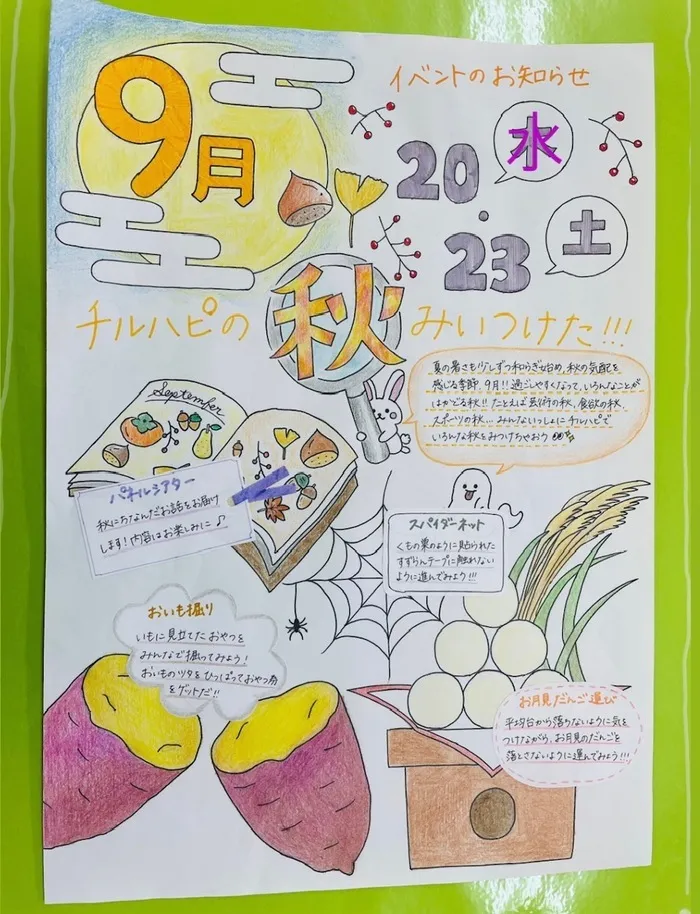 9月
イベントのお知らせ
20 水
・
23 土
チルハピの秋みいつけた!!!
夏の暑さも少しずつ和らぎ始め、秋の気配を
感じる季節、9月!!過ごしやすくなって、いろんなことが
はかどる秋!!たとえば芸術の秋、食欲の秋、
スポーツの秋...みんないっしょにチルハピで
いろんな秋をみつけちゃおう
September
パネルシアター
秋にちなんだお話をお届け
します!内容はお楽しみに♪
スパイダーネット
くもの巣のように貼られた
すずらんテープに触れない
ように進んでみよう!!!
おいも掘り
いもに見立てたおやつを
みんなで掘ってみよう!
おいものツタをひっぱっておやつ
をゲットだ!!
お月見だんご運び
平均台から落ちないように気を
つけながら、お月見のだんごを
落とさないように運んでみよう!!!